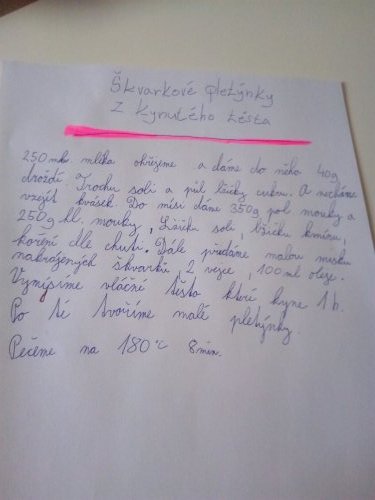 Škvarkové pletýnky
z kynutého těsta
250 ml. mlíka ohřejeme a dáme do něho 40g
droždí Trochu soli a půl lžičky cukru. A necháme
vzejít kvásek Do mísi dáme 350g pol mouky a
250g hl. mouky, Lžičku soli, lžičku kmínu,
koření dle chuti. Dále přidáme malou misku
nakrájených škvarků, 2 vejce, 100ml oleje.
Vymýsíme vláčné těsto které kyne 1h.
Po té tvoříme malé pletýnky.
Pečeme na 180°c 8min.